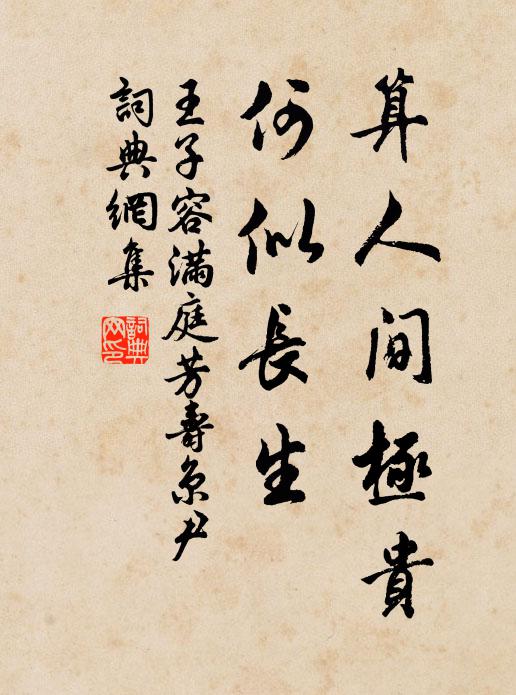 算人間極貴
何似長生
王子容滿庭芳壽京尹
詞典網集
詞典網印